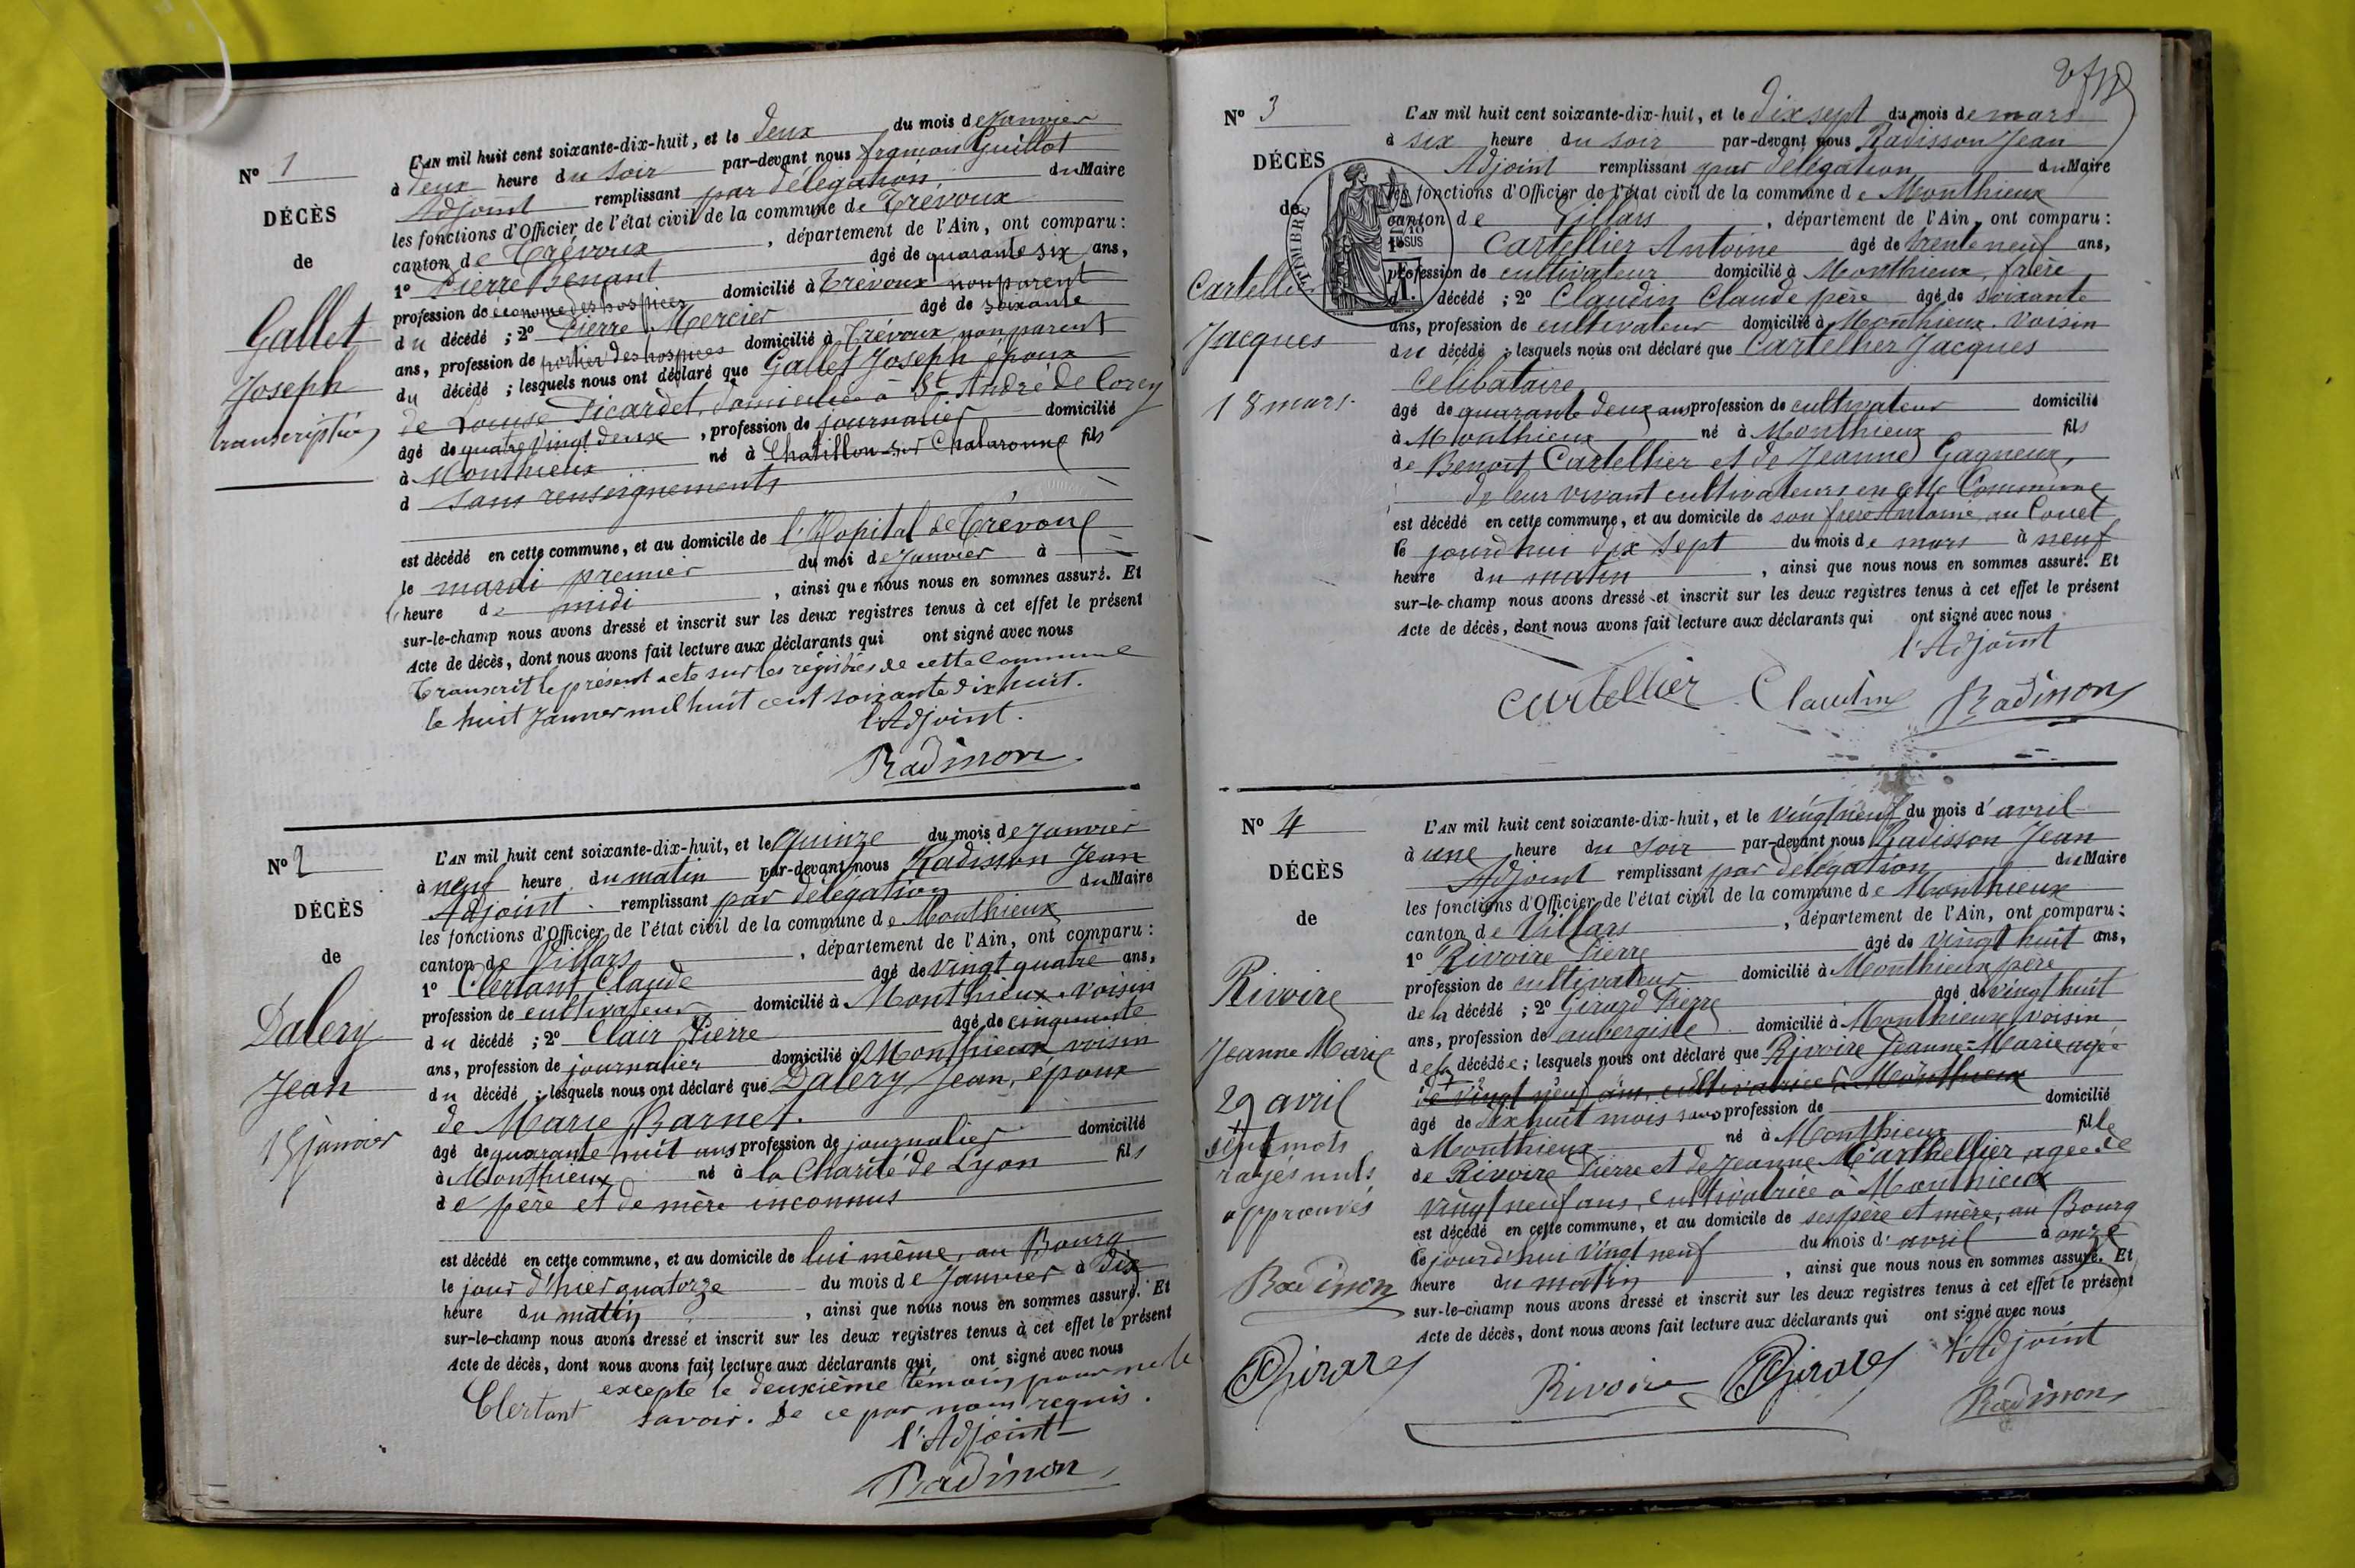 Nº 1
DÉCÈS
de
Gallet
Joseph
transcription
L'AN mil huit cent soixante-dix-huit, et le deux du mois de Janvier
à deux heure du soir par-devant nous françois Guillot
Adjoint remplissant par délégation du Maire
les fonctions d'Officier de l'état civil de la commune de Trévoux
canton de Trévoux, département de l'Ain, ont comparu :
1º Pierre Benant âgé de quarante six ans,
profession de économe des hospices domicilié à Trévoux non parent
du décédé ; 2º Pierre Mercier âgé de soixante
ans, profession de portier des hospices domicilié à Trévoux non parent
du décédé ; lesquels nous ont déclaré que Gallet Joseph époux
de Louise Picardet, domiciliée à St André de Corcy
âgé de quatre vingt deux, profession de journalier domicilié
à Monthieux né à Chatillon sur Chalaronne fils
d sans renseignements
est décédé en cette commune, et au domicile de l'Hopital de Trévoux
le mardi premier du moi de Janvier à
heure de midi, ainsi que nous nous en sommes assuré. Et
sur-le-champ nous avons dressé et inscrit sur les deux registres tenus à cet effet le présent
Acte de décès, dont nous avons fait lecture aux déclarants qui ont signé avec nous
Transcrit le présent acte sur les régistres de cette Commune
le huit Janvier mil huit cent soixante dix huit.
l'Adjoint.
Radisson
Nº 2
DÉCÈS
de
Dalery
Jean
15 janvier
L'AN mil huit cent soixante-dix-huit, et le Quinze du mois de Janvier
à neuf heure du matin par-devant nous Radisson Jean
Adjoint remplissant par délégation du Maire
les fonctions d'Officier de l'état civil de la commune de Monthieux
canton de Villars, département de l'Ain, ont comparu :
1º Clertant Claude âgé de vingt quatre ans,
profession de cultivateur domicilié à Monthieux voisin
du décédé ; 2º Clair Pierre âgé de cinquante
ans, profession de journalier domicilié à Monthieux voisin
du décédé ; lesquels nous ont déclaré que Dalery Jean, époux
de Marie Barnet.
âgé de quarante huit ans profession de journalier domicilié
à Monthieux né à la Charité de Lyon fils
de père et de mère inconnus
est décédé en cette commune, et au domicile de lui même, au Bourg
le jour d'hier quatorze du mois de Janvier à dix
heure du matin, ainsi que nous nous en sommes assuré. Et
sur-le-champ nous avons dressé et inscrit sur les deux registres tenus à cet effet le présent
Acte de décès, dont nous avons fait lecture aux déclarants qui ont signé avec nous
excepté le deuxième témoin pour ne le
Clertant savoir. De ce par nous requis.
l'Adjoint
Radisson
Nº 3
DÉCÈS
de
Cartellier
Jacques
18 mars.
TIMBRE
L'AN mil huit cent soixante-dix-huit, et le dix sept du mois de mars
à six heure du soir par-devant nous Radisson Jean
Adjoint remplissant par délégation du Maire
les fonctions d'Officier de l'état civil de la commune de Monthieux
canton de Villars, département de l'Ain, ont comparu :
1º Cartellier Antoine âgé de trente neuf ans,
profession de cultivateur domicilié à Monthieux, frère
du décédé ; 2º Claudin Claude père âgé de soixante
ans, profession de cultivateur domicilié à Monthieux. Voisin
du décédé ; lesquels nous ont déclaré que Cartellier Jacques
Célibataire
âgé de quarante deux ans profession de cultivateur domicilié
à Monthieux né à Monthieux fils
de Benoit Cartellier et de Jeanne Gagneux,
de leur vivant cultivateurs en cette Commune
est décédé en cette commune, et au domicile de son frère Antoine, au Couet
le jourd'hui dix sept du mois de mars à neuf
heure du matin, ainsi que nous nous en sommes assuré. Et
sur-le-champ nous avons dressé et inscrit sur les deux registres tenus à cet effet le présent
Acte de décès, dont nous avons fait lecture aux déclarants qui ont signé avec nous
l'Adjoint
Cartellier Claudin Radisson
Nº 4
DÉCÈS
de
Rivoire
Jeanne Marie
29 avril
sept mots
rayés nuls
approuvés
Radisson
Girard
L'AN mil huit cent soixante-dix-huit, et le vingt neuf du mois d'avril
à une heure du soir par-devant nous Radisson Jean
Adjoint remplissant par délégation du Maire
les fonctions d'Officier de l'état civil de la commune de Monthieux
canton de Villars, département de l'Ain, ont comparu :
1º Rivoire Pierre âgé de vingt huit ans,
profession de cultivateur domicilié à Monthieux père
de la décédé ; 2º Girard Pierre âgé de vingt huit
ans, profession de aubergiste domicilié à Monthieux voisin
de la décédée ; lesquels nous ont déclaré que Rivoire Jeanne-Marie agée
de vingt neuf ans, cultivatrice à Monthieux
âgé de dix huit mois sans profession de domicilié
à Monthieux né à Monthieux fille
de Rivoire Pierre et de Jeanne Marthellier agée de
vingt neuf ans, cultivatrice à Monthieux
est décédé en cette commune, et au domicile de ses père et mère, au Bourg
le jourd'hui vingt neuf du mois d'avril à onze
heure du matin, ainsi que nous nous en sommes assuré. Et
sur-le-champ nous avons dressé et inscrit sur les deux registres tenus à cet effet le présent
Acte de décès, dont nous avons fait lecture aux déclarants qui ont signé avec nous
l'Adjoint
Rivoire Girard Radisson